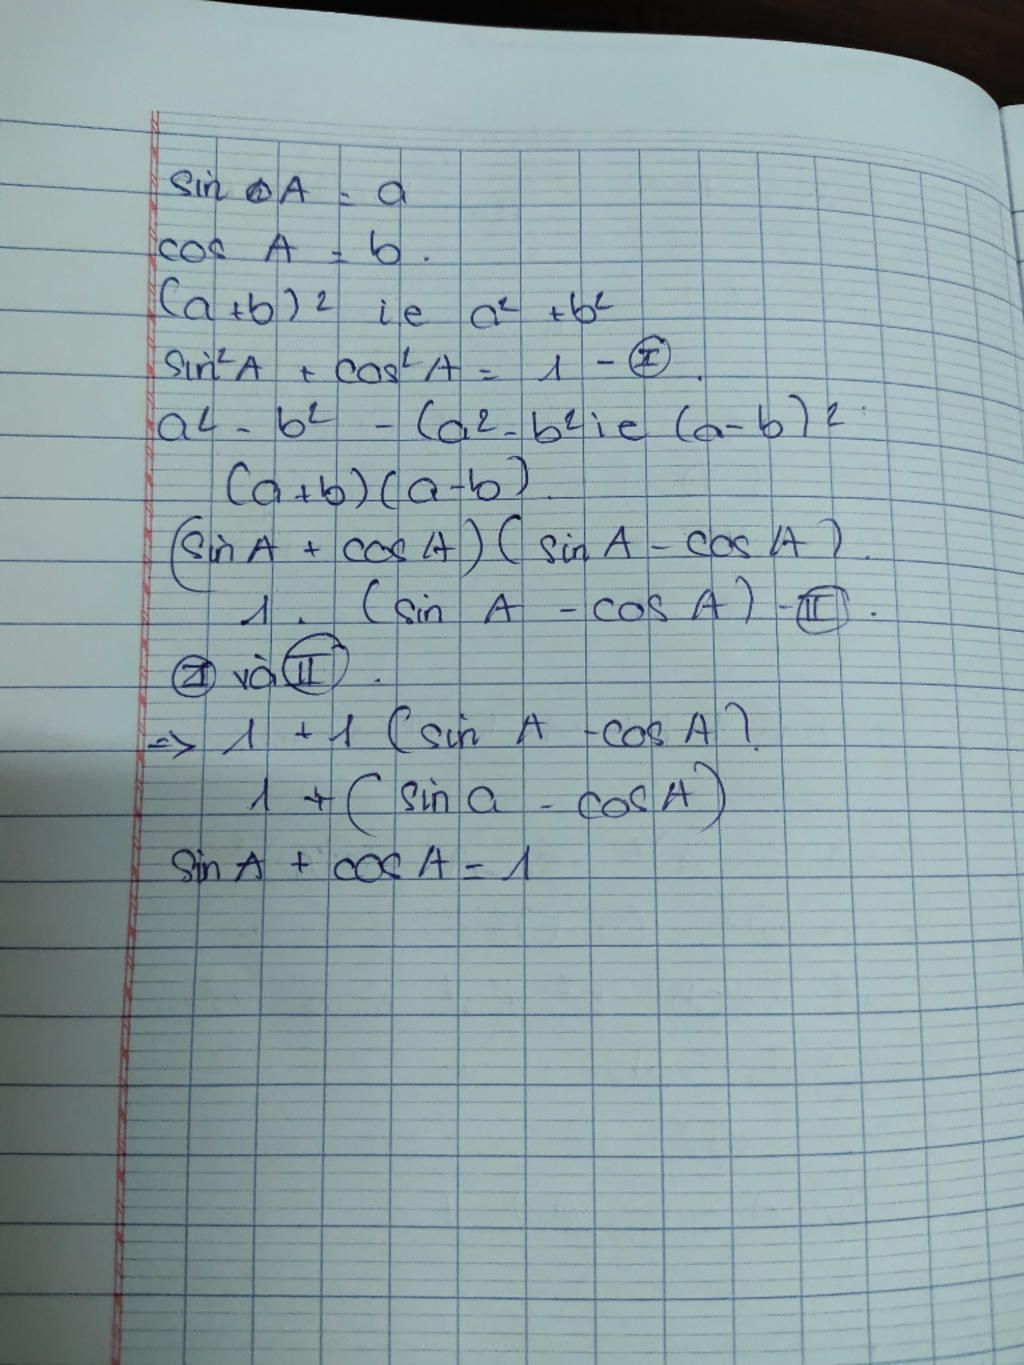 sin A = a
cos A = b.
(a+b)² ie a² + b²
sin²A + cos²A = 1 - Ⓘ.
a² - b² - (a² - b² ie (a-b)²
(a+b)(a-b).
(sin A + cos A) (sin A - cos A).
1. (sin A - cos A) - Ⅱ.
Ⓘ và Ⅱ.
=> 1 + 1 (sin A - cos A).
1 + (sin a - cos A)
sin A + cos A = 1